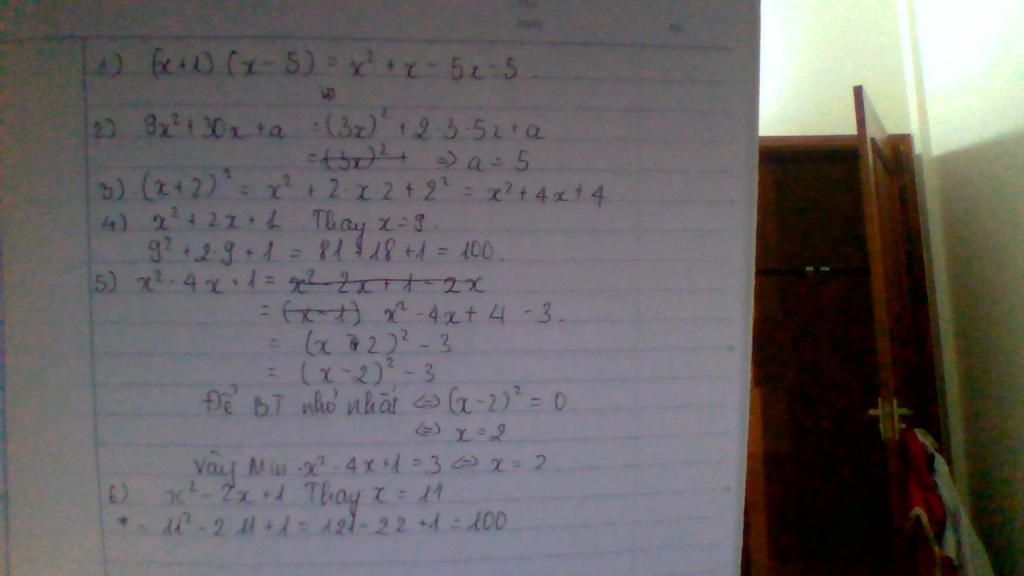 1) (x+1) (x-5) = x² + x - 5x - 5.
2) 9x² + 30x + a = (3x)² + 2·3·5x + a
= (3x)² + => a = 5
3) (x+2)² = x² + 2·x 2 + 2² = x² + 4x + 4
4) x² + 2x + 1 Thay x = 9.
9² + 2·9 + 1 = 81 + 18 + 1 = 100.
5) x² - 4x + 1 = x² - 2x + 1 - 2x
= (x - 1) x² - 4x + 4 - 3.
= (x 2)² - 3
= (x - 2)² - 3
Để BT nhỏ nhất <=> (x-2)² = 0
<=> x = 2
Vậy Min x² - 4x + 1 = 3 <=> x = 2
6) x² - 2x + 1 Thay x = 11
= 11² - 2 11 + 1 = 121 - 22 + 1 = 100